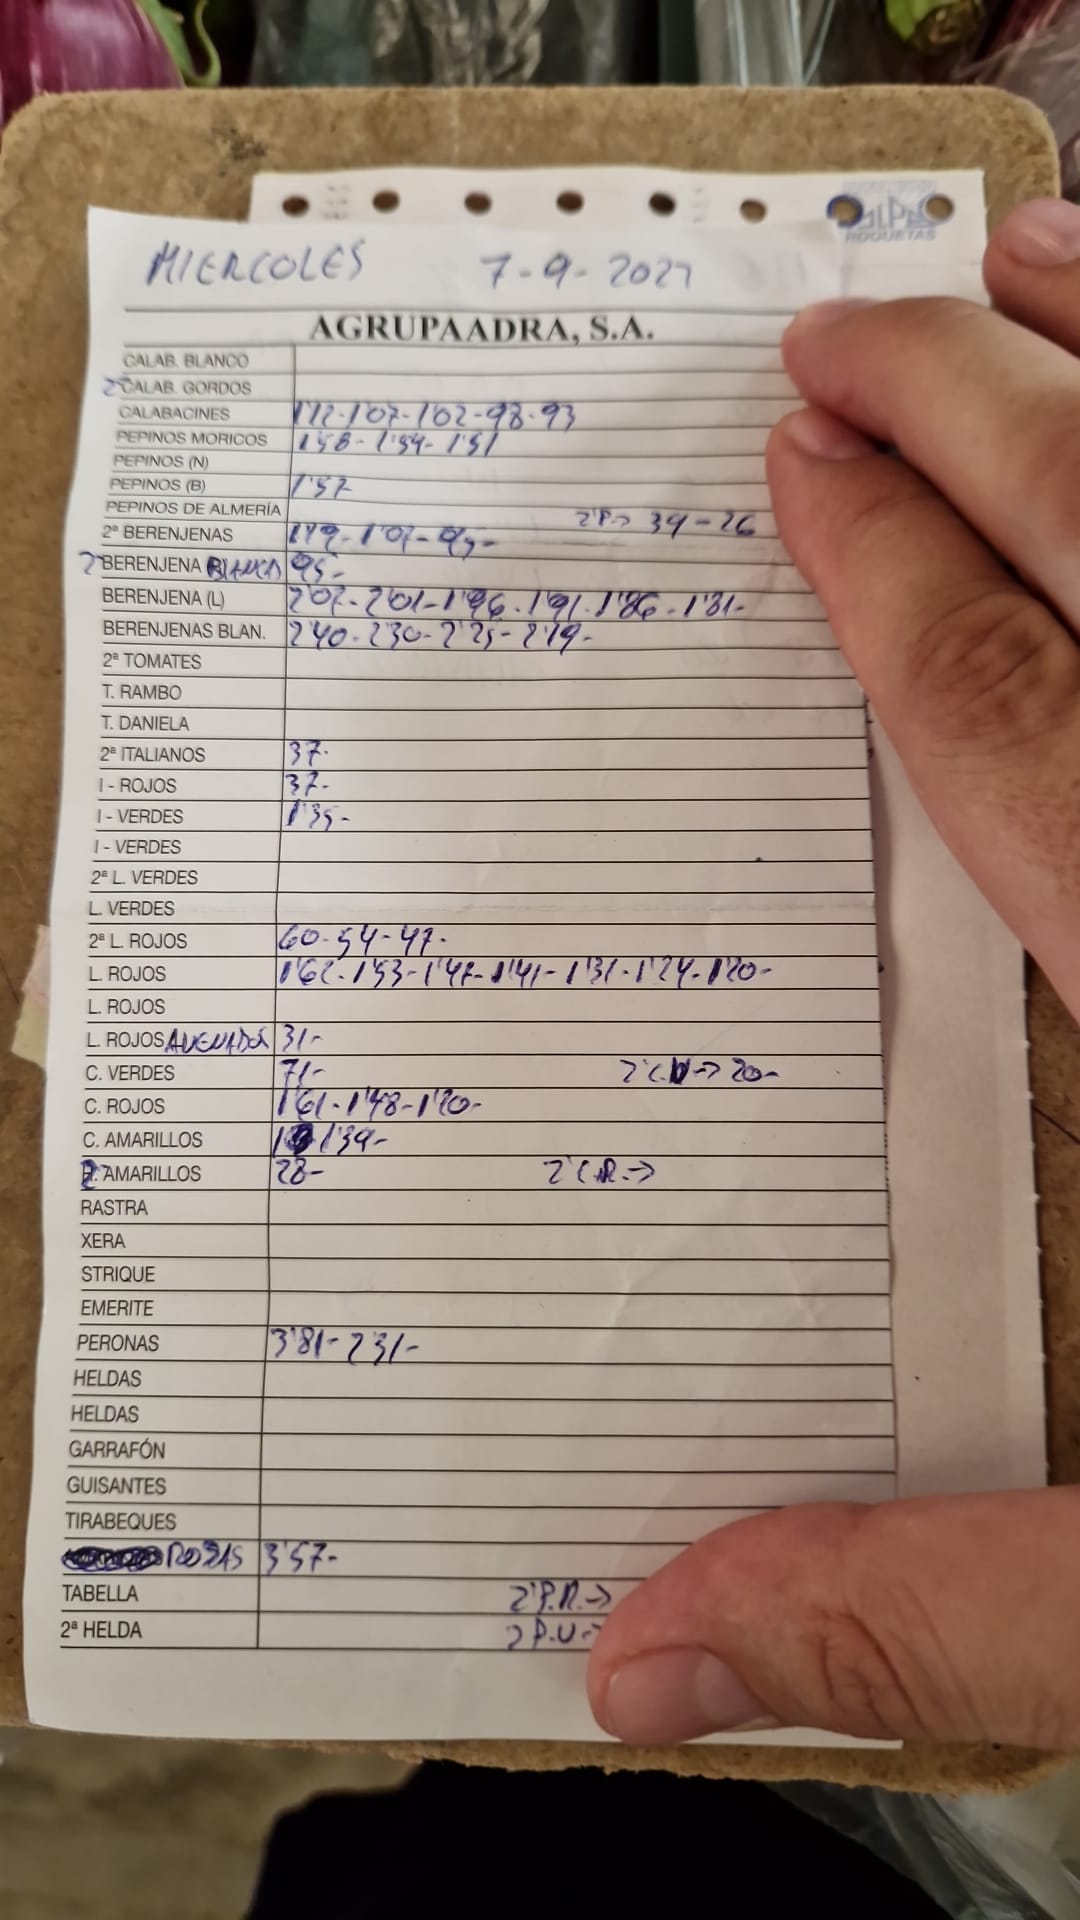 ROQUETAS
MIERCOLES 7-9-2022
AGRUPAADRA, S.A.
CALAB. BLANCO
2ª CALAB. GORDOS
CALABACINES 1'12-1'07-1'02-98-93
PEPINOS MORICOS 1'58-1'54-1'51
PEPINOS (N)
PEPINOS (B) 1'57
PEPINOS DE ALMERÍA 2ªP-> 39-26
2ª BERENJENAS 1'19-1'07-95-
2ª BERENJENA BLANCA 95-
BERENJENA (L) 2'07-2'01-1'96-1'91-1'86-1'81-
BERENJENAS BLAN. 2'40-2'30-2'25-2'19-
2ª TOMATES
T. RAMBO
T. DANIELA
2ª ITALIANOS 37-
I - ROJOS 37-
I - VERDES 1'35-
I - VERDES
2ª L. VERDES
L. VERDES
2ª L. ROJOS 60-54-47-
L. ROJOS 1'62-1'53-1'47-1'41-1'31-1'24-1'20-
L. ROJOS
L. ROJOS 31-
C. VERDES 71- 2ªC.V-> 20-
C. ROJOS 1'61-1'48-1'20-
C. AMARILLOS 1'39-
2ª AMARILLOS 28- 2ªC.R.->
RASTRA
XERA
STRIQUE
EMERITE
PERONAS 3'81-2'31-
HELDAS
HELDAS
GARRAFÓN
GUISANTES
TIRABEQUES
ROJAS 3'57-
TABELLA 2ªP.R.->
2ª HELDA 2ªP.V->